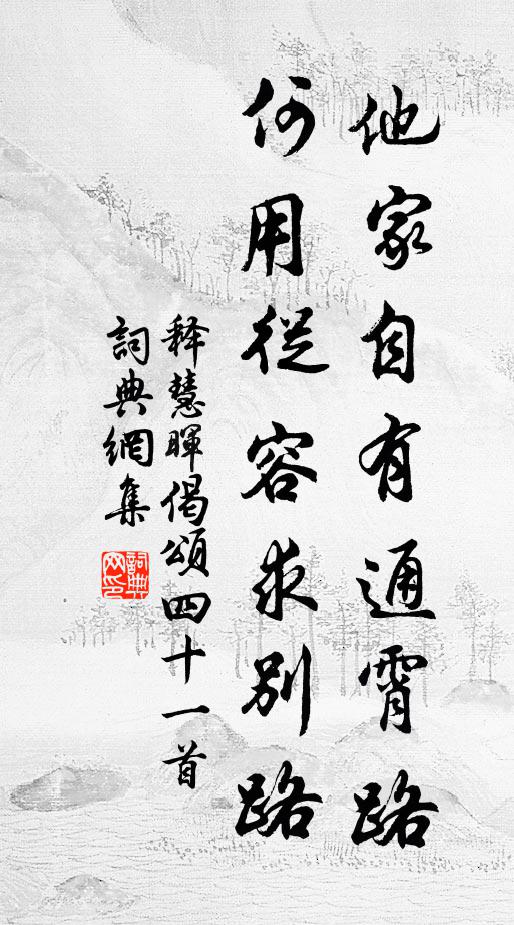 他家自有通霄路
何用從容求別路
释慧暉偈頌四十一首
詞典網集
詞典
网印